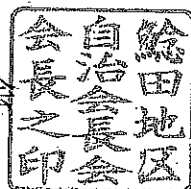 鯰田地区
自治会長会
会長之印